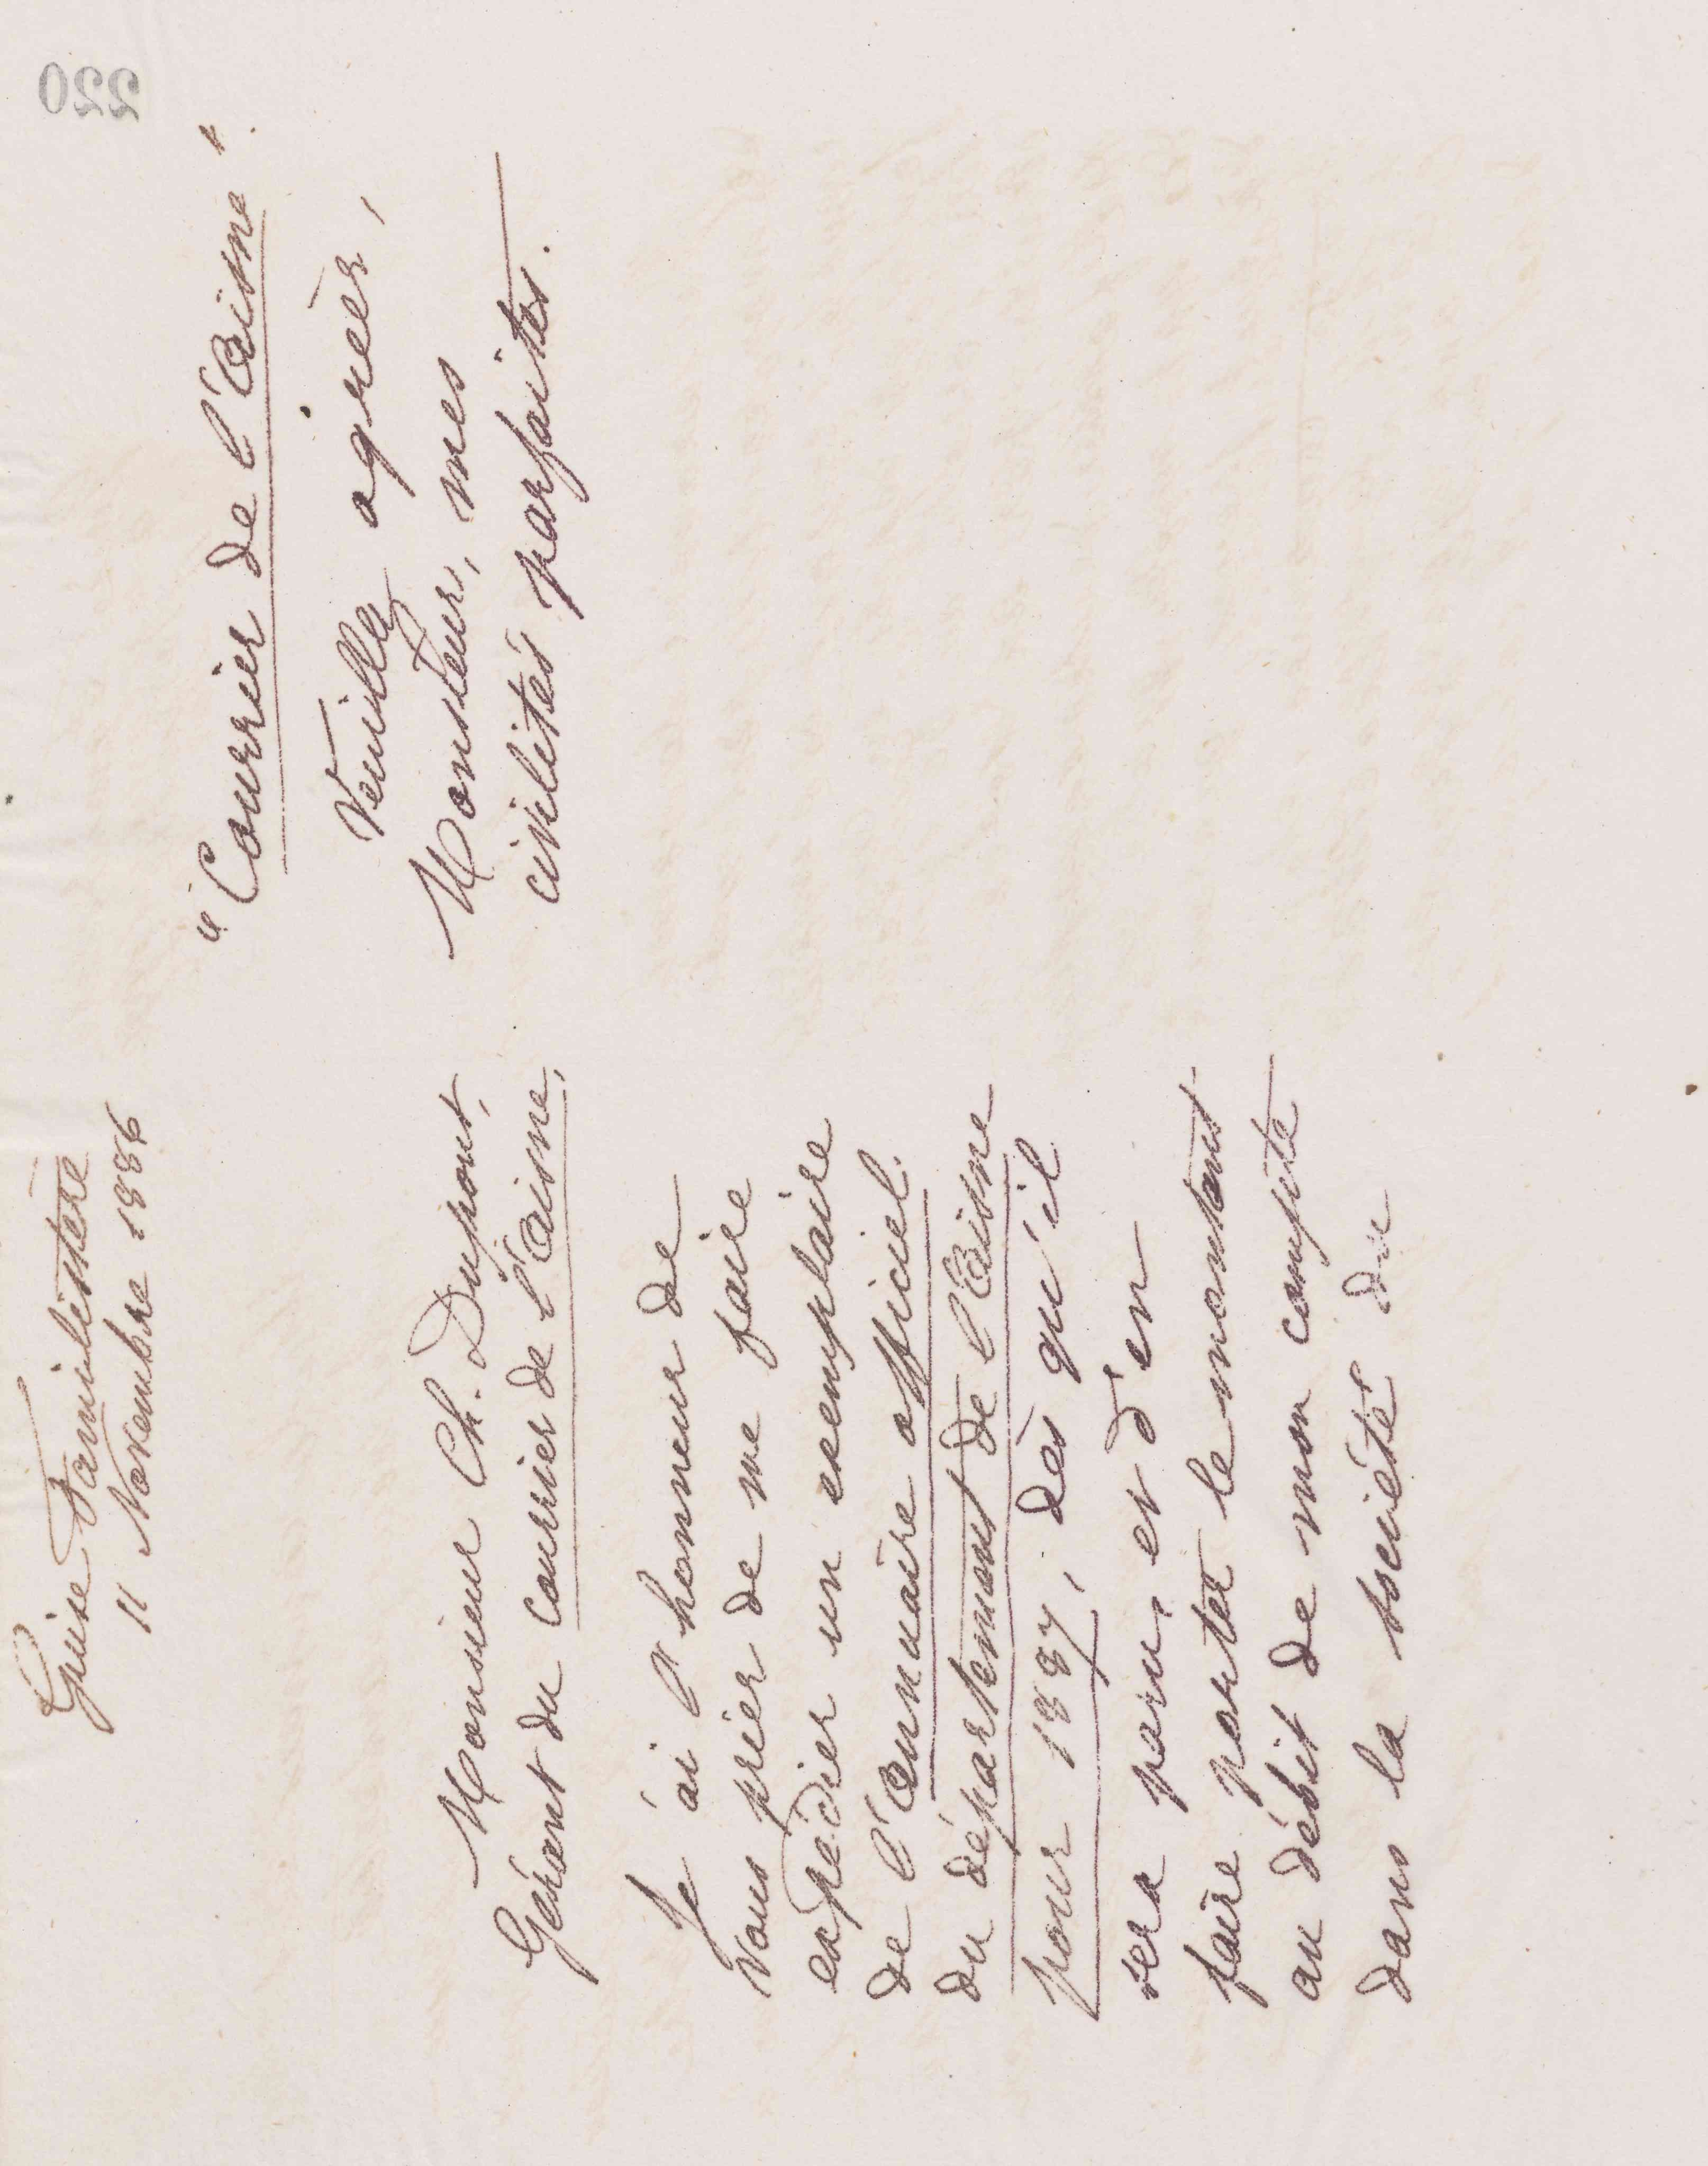 Guise Familistère
11 Novembre 1886
Monsieur Ch. Dupont,
Gérant du Courrier de l'Aisne,
Je ai l'honneur de
vous prier de me faire
expédier un exemplaire
de l'Annuaire officiel
du département de l'Aisne
pour 1887, dès qu'il
sera paru, et d'en
faire porter le montant
au débit de mon compte
dans la société du
"Courrier de l'Aisne".
Veuillez agréer,
Monsieur, mes
civilités parfaites.
220